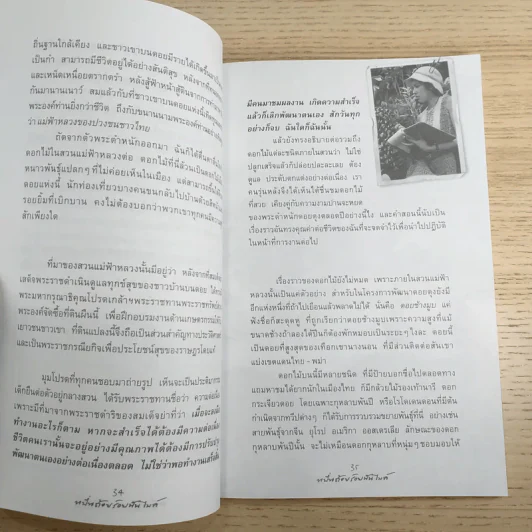 ถิ่นฐานใกล้เคียง และชาวเขาบนดอยมีรายได้เกิดขึ้น
เป็นกำ สามารถมีชีวิตอยู่ได้อย่างสันติสุข หลังจากที่
และเหน็ดเหนื่อยตรากตรำ หลังสู้ฟ้าหน้าสู้ดินจากการ
กันมานานเนาว์ สมแล้วกับที่ชาวเขาบนดอยแห่งนี้
พระองค์ท่านยิ่งกว่าชีวิต ถึงกับขนานนามพระองค์ท่าน
ว่า แม่ฟ้าหลวงของปวงชนชาวไทย
ถัดจากตัวพระตำหนักออกมา ฉันก็ได้
ดอกไม้ในสวนแม่ฟ้าหลวงต่อ ดอกไม้ที่นี่ล้วนเป็น
หนาวพันธุ์แปลกๆ ที่ไม่ค่อยเห็นในเมือง แต่สามารถ
ดอยแห่งนี้ นักท่องเที่ยวบางคนขนกลับไปบ้านด้วย
รอยยิ้มที่เบิกบาน คงไม่ต้องบอกว่าพวกเขาทุกคน
สักเพียงใด
ที่มาของสวนแม่ฟ้าหลวงนั้นมีอยู่ว่า หลังจากที่
เสด็จพระราชดำเนินดูแลทุกข์สุขของชาวบ้านบนดอย
พระมหากรุณาธิคุณโปรดเกล้าฯ พระราชทานพระราชทรัพย์
พระองค์จัดซื้อที่ดินผืนนี้ เพื่อฝึกอบรมงานด้านเกษตรกรรม
เยาวชนชาวเขา ที่ดินแปลงนี้จึงถือเป็นส่วนสำคัญทางประวัติศาสตร์
และเป็นพระราชกรณียกิจเพื่อประโยชน์สุขของราษฎร
มุมโปรดที่ทุกคนชอบมาถ่ายรูป เห็นจะเป็นประติมากรรม
เด็กยืนต่อตัวอยู่กลางสวน ได้รับพระราชทานชื่อว่า ความต่อเนื่อง
เพราะมีที่มาจากพระราชดำริของสมเด็จย่าที่ว่า เมื่อจะลงมือ
ทำงานอะไรก็ตาม หากจะสำเร็จได้ต้องมีความต่อเนื่อง
ชีวิตคนเรานั้นจะอยู่อย่างมีคุณภาพได้ต้องมีการปรับปรุง
พัฒนาตนเองอย่างต่อเนื่องตลอด ไม่ใช่ว่าพอทำงานเสร็จสิ้น
34
หมื่นร้อยโยนพันไมล์
มีคนมาชมผลงาน เกิดความสำเร็จ
แล้วก็เลิกพัฒนาตนเอง สักวันทุก
อย่างก็จบ ฉันใดก็ฉันนั้น
แล้วยังทรงอธิบายต่อรวมถึง
ดอกไม้แต่ละชนิดภายในสวนว่า ไม่ใช่
ปลูกเสร็จแล้วก็ปล่อยปละละเลย ต้อง
ดูแล ประดับตกแต่งอย่างต่อเนื่อง เรา
คนรุ่นหลังจึงได้เห็นได้ชื่นชมดอกไม้
ที่สวย เคียงคู่กับความงามบ้านจะหยุด
ของพระตำหนักดอยตุงตลอดปีอย่างนี้ไง และคำสอนนี้นับเป็น
เรื่องราวอันทรงคุณค่าต่อชีวิตของฉันที่จะจดจำไว้เพื่อนำไปปฏิบัติ
ในหน้าที่การงานต่อไป
เรื่องราวของดอกไม้ยังไม่หมด เพราะภายในสวนแม่ฟ้า
หลวงนั้นเป็นแค่ตัวอย่าง สำหรับในโครงการพัฒนาดอยตุงยังมี
อีกแห่งหนึ่งที่ถ้าไปเยือนแล้วพลาดไม่ได้ นั่นคือ ดอยช้างมูบ แค่
ฟังชื่อก็สะดุดหู ที่ถูกเรียกว่าดอยช้างมูบเพราะความสูงที่แม้
ขนาดช้างถ้าลองได้ปีนก็ต้องพักหมอบเป็นระยะๆ ไงละ ดอยนี้
เป็นดอยที่สูงสุดของเทือกเขานางนอน ที่มีส่วนติดต่อสันเขา
แบ่งเขตแดนไทย - พม่า
ดอกไม้บนนี้มีหลายชนิด ที่มีป้ายบอกชื่อไปตลอดทาง
แถมหาชมได้ยากนักในเมืองไทย ก็มีกล้วยไม้รองเท้านารี ดอก
กระเจียวดอย โดยเฉพาะกุหลาบพันปี หรือโรโดเดนดอนที่มีต้น
กำเนิดจากทวีปต่างๆ ก็ได้รับการรวบรวมขยายพันธุ์ที่นี่ อย่างเช่น
สายพันธุ์จากจีน ยุโรป อเมริกา ออสเตรเลีย ลักษณะของดอก
กุหลาบพันปีนั้น จะไม่เหมือนดอกกุหลาบที่หนุ่มๆ ชอบมอบให้
35
หมื่นร้อยโยนพันไมล์